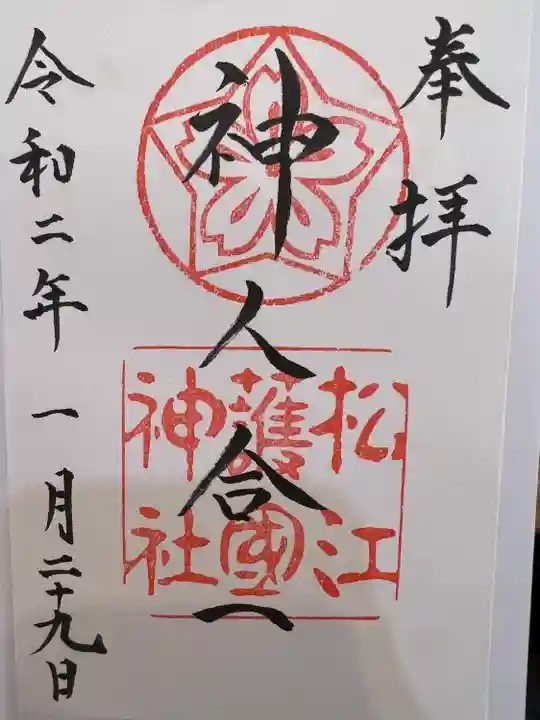 奉拝
神人合一
松江
護國
神社
令和二年 一月二十九日